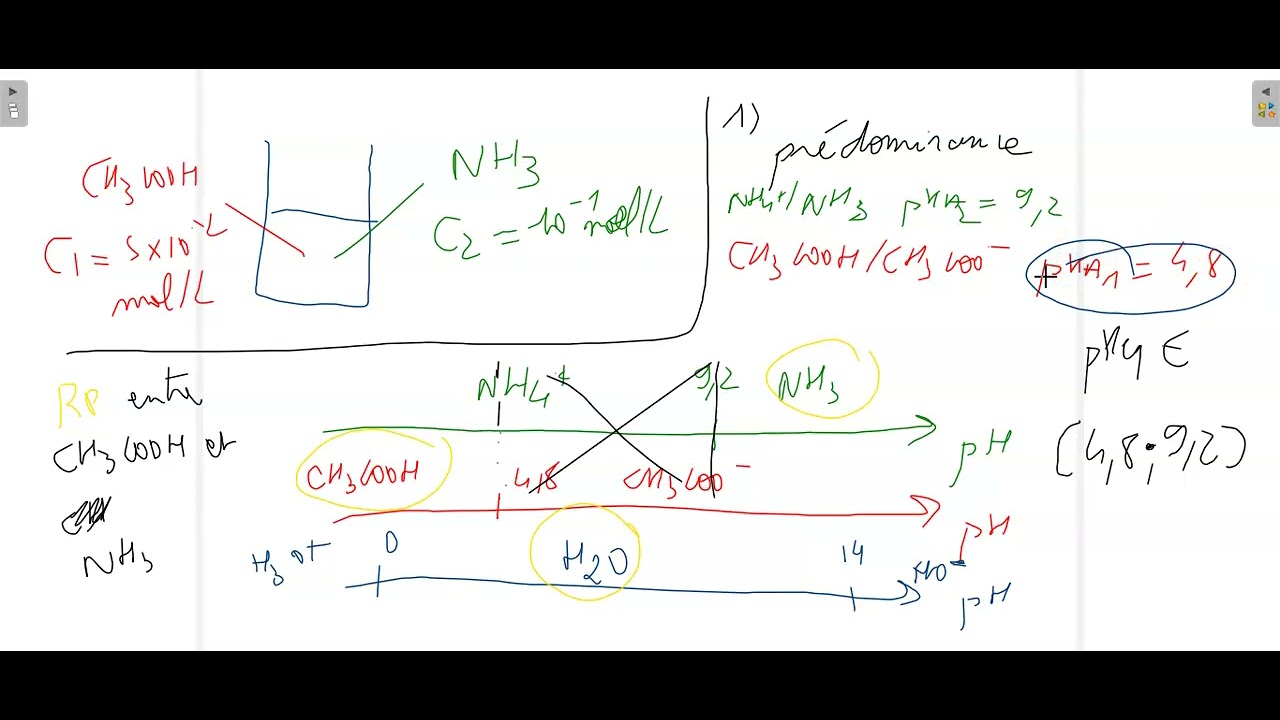 CH3COOH
C1 = 5×10^-2
mol/L
NH3
C2 = 10^-1 mol/L
1)
prédominance
NH4+/NH3 pKA2 = 9,2
CH3COOH/CH3COO- pKA1 = 4,8
pHéq ∈
[4,8;9,2]
RP entre
CH3COOH et
NH3
NH4+ 9,2 NH3
pH
CH3COOH 4,8 CH3COO-
pH
H3O+ 0 H2O 14 HO-
pH